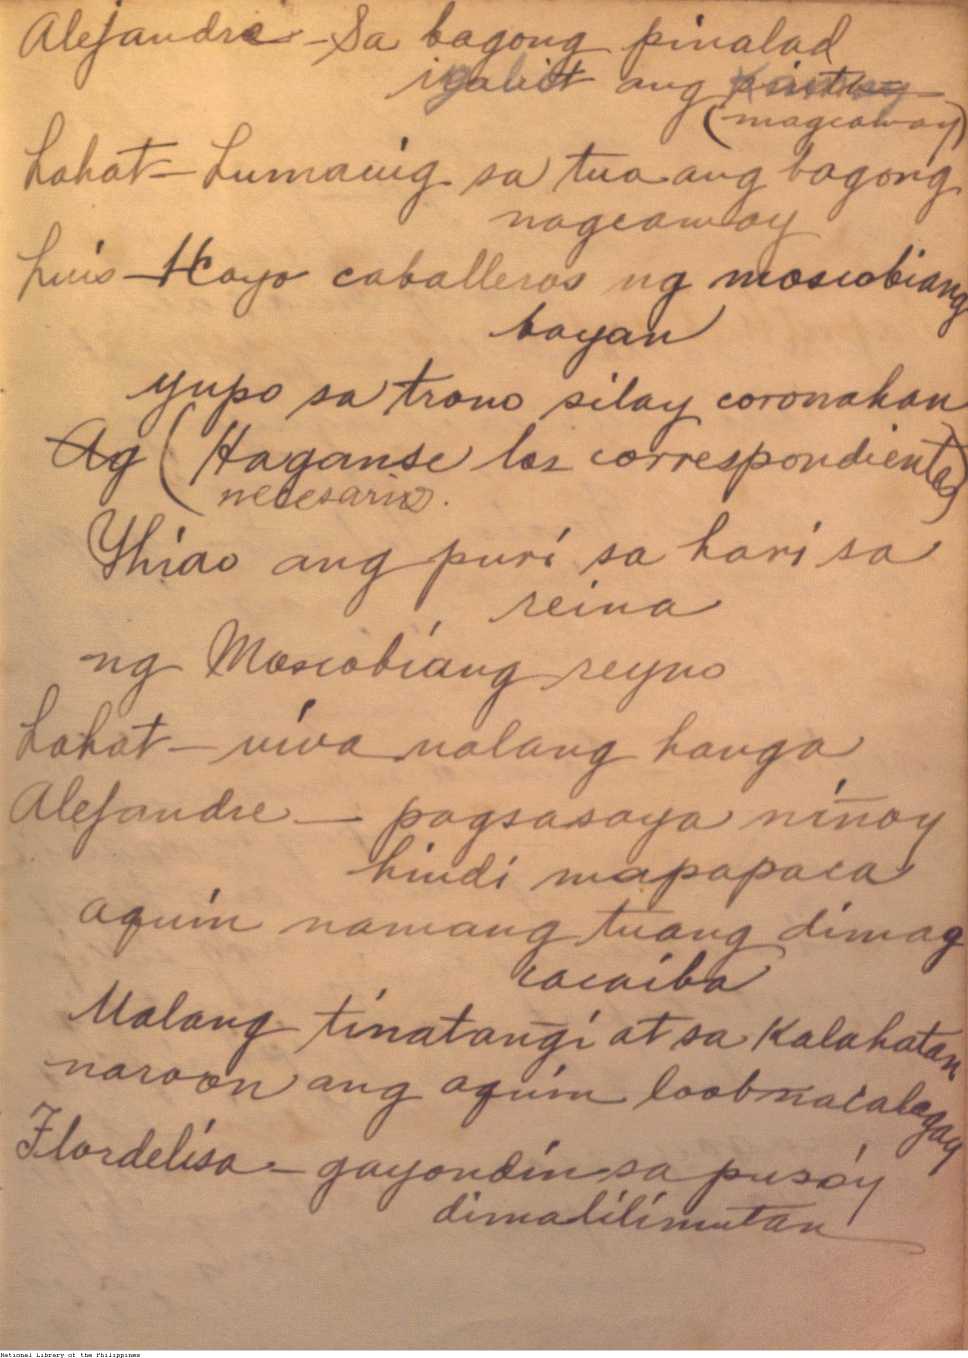 Alejandre - Sa bagong pinalad
igalict ang
(magcaway)
Lahat - Lumaüig sa tua ang bagong
nagcaway
Luis - Kayo caballeros ng moscobiang
bayan
yupo sa trono silay coronahan
Ag (Haganse los correspondientes
necesario.
Yhiao ang puri sa hari sa
reina
ng Moscobiang reyno
Lahat - viva nalang hanga
Alejandre - pagsasaya niñoy
hindi mapapaca
aquin namang tuang dimag
cacaiba
Malang tinatangi at sa Kalahatan
naroon ang aquin loob nacalagay
Flordelisa - gayondin sa pusoy
dimalilimutan
National Library of the Philippines